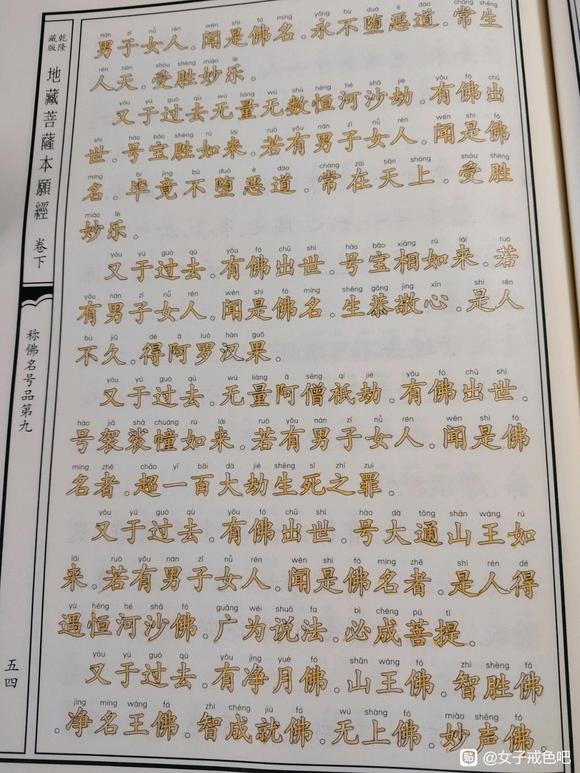 乾隆
藏版
地藏菩薩本願經 卷下
称佛名号品第九
五四
nán zǐ nǚ rén wén shì fó míng yǒng bù duò è dào cháng shēng
男子女人。闻是佛名。永不堕恶道。常生
rén tiān shòu shèng miào lè
人天。受胜妙乐。
yòu yú guò qù wú liàng wú shù héng hé shā jié yǒu fó chū
又于过去无量无数恒河沙劫。有佛出
shì hào bǎo shèng rú lái ruò yǒu nán zǐ nǚ rén wén shì fó
世。号宝胜如来。若有男子女人。闻是佛
míng bì jìng bù duò è dào cháng zài tiān shàng shòu shèng
名。毕竟不堕恶道。常在天上。受胜
miào lè
妙乐。
yòu yú guò qù yǒu fó chū shì hào bǎo xiàng rú lái ruò
又于过去。有佛出世。号宝相如来。若
yǒu nán zǐ nǚ rén wén shì fó míng shēng gōng jìng xīn shì rén
有男子女人。闻是佛名。生恭敬心。是人
bù jiǔ dé ā luó hàn guǒ
不久。得阿罗汉果。
yòu yú guò qù wú liàng ā sēng qí jié yǒu fó chū shì
又于过去。无量阿僧祇劫。有佛出世。
hào jiā shā chuáng rú lái ruò yǒu nán zǐ nǚ rén wén shì fó
号袈裟幢如来。若有男子女人。闻是佛
míng zhě chāo yī bǎi dà jié shēng sǐ zhī zuì
名者。超一百大劫生死之罪。
yòu yú guò qù yǒu fó chū shì hào dà tōng shān wáng rú
又于过去。有佛出世。号大通山王如
lái ruò yǒu nán zǐ nǚ rén wén shì fó míng zhě shì rén dé
来。若有男子女人。闻是佛名者。是人得
yù héng hé shā fó guǎng wèi shuō fǎ bì chéng pú tí
遇恒河沙佛。广为说法。必成菩提。
yòu yú guò qù yǒu jìng yuè fó shān wáng fó zhì shèng fó
又于过去。有净月佛。山王佛。智胜佛
jìng míng wáng fó zhì chéng jiù fó wú shàng fó miào shēng fó
。净名王佛。智成就佛。无上佛。妙声佛。
贴 @女子戒色吧